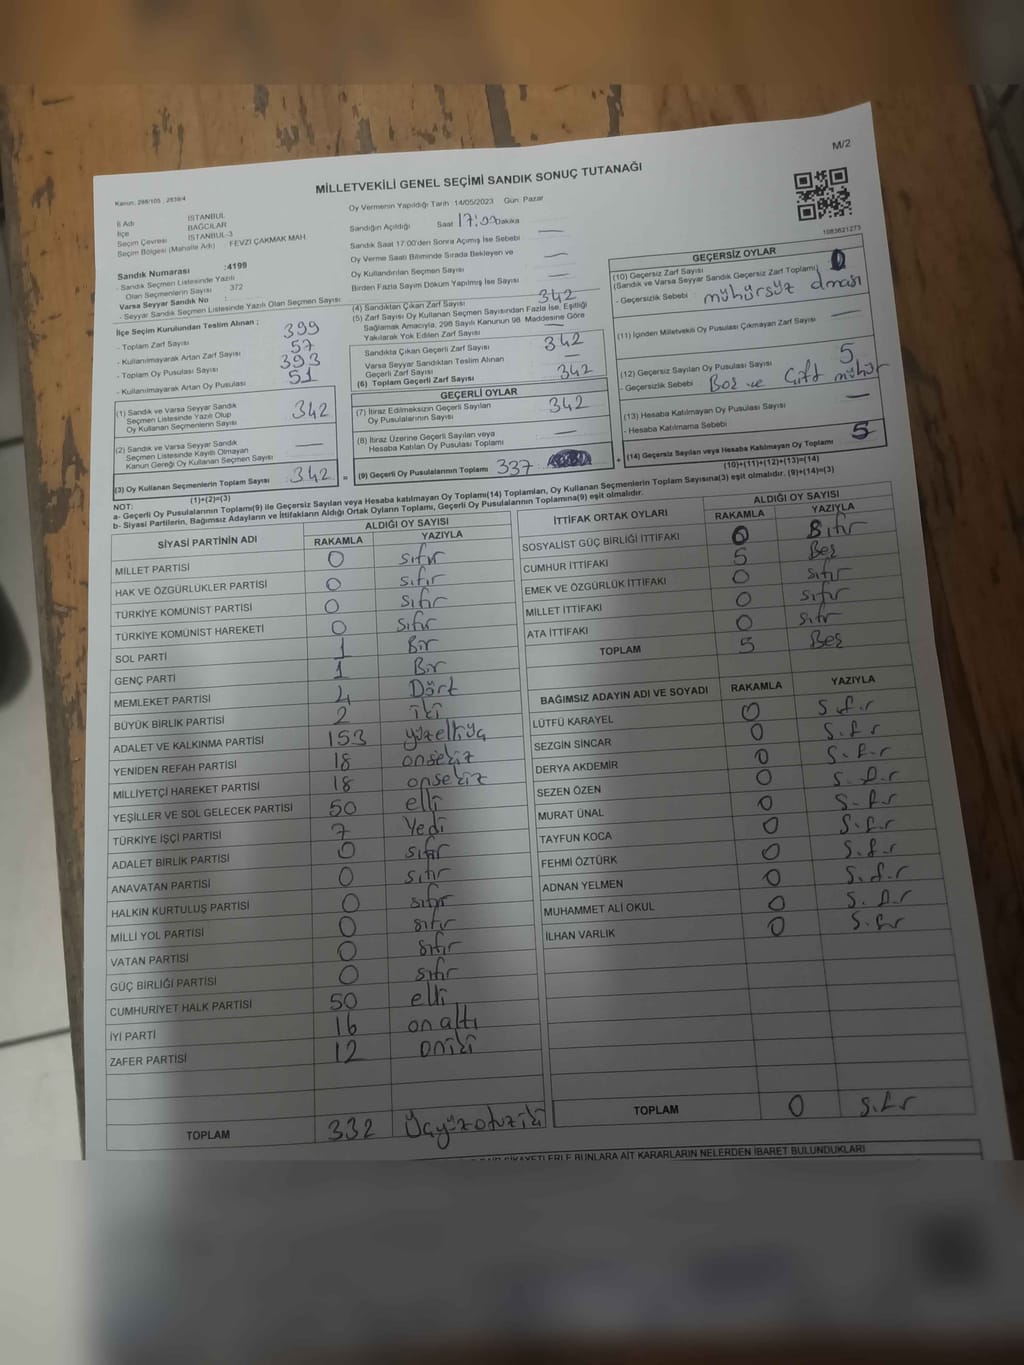 M/2
MİLLETVEKİLİ GENEL SEÇİMİ SANDIK SONUÇ TUTANAĞI
Kanun: 298/105 ; 2839/4
İl Adı İSTANBUL
İlçe BAĞCILAR
Seçim Çevresi İSTANBUL-3
Seçim Bölgesi (Mahalle Adı) FEVZİ ÇAKMAK MAH.
Sandık Numarası :4199
- Sandık Seçmen Listesinde Yazılı
Olan Seçmenlerin Sayısı 372
Varsa Seyyar Sandık No :
- Seyyar Sandık Seçmen Listesinde Yazılı Olan Seçmen Sayısı:
İlçe Seçim Kurulundan Teslim Alınan ;
- Toplam Zarf Sayısı 399
- Kullanılmayarak Artan Zarf Sayısı 57
- Toplam Oy Pusulası Sayısı 393
- Kullanılmayarak Artan Oy Pusulası 51
(1) Sandık ve Varsa Seyyar Sandık
Seçmen Listesinde Yazılı Olup
Oy Kullanan Seçmenlerin Sayısı 342
(2) Sandık ve Varsa Seyyar Sandık
Seçmen Listesinde Kayıtlı Olmayan
Kanun Gereği Oy Kullanan Seçmen Sayısı —
(3) Oy Kullanan Seçmenlerin Toplam Sayısı 342
(1)+(2)=(3)
Oy Vermenin Yapıldığı Tarih 14/05/2023 Gün: Pazar
Sandığın Açıldığı Saat 17:00 Dakika
Sandık Saat 17.00'den Sonra Açılmış İse Sebebi —
Oy Verme Saati Bitiminde Sırada Bekleyen ve
Oy Kullandırılan Seçmen Sayısı —
Birden Fazla Sayım Döküm Yapılmış İse Sayısı —
(4) Sandıktan Çıkan Zarf Sayısı 342
(5) Zarf Sayısı Oy Kullanan Seçmen Sayısından Fazla İse, Eşitliği
Sağlamak Amacıyla, 298 Sayılı Kanunun 98. Maddesine Göre
Yakılarak Yok Edilen Zarf Sayısı —
Sandıkta Çıkan Geçerli Zarf Sayısı 342
Varsa Seyyar Sandıktan Teslim Alınan
Geçerli Zarf Sayısı —
(6) Toplam Geçerli Zarf Sayısı 342
GEÇERLİ OYLAR
(7) İtiraz Edilmeksizin Geçerli Sayılan
Oy Pusulalarının Sayısı 342
(8) İtiraz Üzerine Geçerli Sayılan veya
Hesaba Katılan Oy Pusulası Toplamı —
(9) Geçerli Oy Pusulalarının Toplamı 337
1083621273
GEÇERSİZ OYLAR
(10) Geçersiz Zarf Sayısı
(Sandık ve Varsa Seyyar Sandık Geçersiz Zarf Toplamı) 0
- Geçersizlik Sebebi : mühürsüz olması
(11) İçinden Milletvekili Oy Pusulası Çıkmayan Zarf Sayısı —
(12) Geçersiz Sayılan Oy Pusulası Sayısı 5
- Geçersizlik Sebebi : Boş ve Çift mühür
(13) Hesaba Katılmayan Oy Pusulası Sayısı —
- Hesaba Katılmama Sebebi
(14) Geçersiz Sayılan veya Hesaba Katılmayan Oy Toplamı 5
(10)+(11)+(12)+(13)=(14)
NOT:
a- Geçerli Oy Pusulalarının Toplamı(9) ile Geçersiz Sayılan veya Hesaba katılmayan Oy Toplamı(14) Toplamları, Oy Kullanan Seçmenlerin Toplam Sayısına(3) eşit olmalıdır. (9)+(14)=(3)
b- Siyasi Partilerin, Bağımsız Adayların ve İttifakların Aldığı Ortak Oyların Toplamı, Geçerli Oy Pusulalarının Toplamına(9) eşit olmalıdır.
SİYASİ PARTİNİN ADI ALDIĞI OY SAYISI
RAKAMLA YAZIYLA
MİLLET PARTİSİ 0 sıfır
HAK VE ÖZGÜRLÜKLER PARTİSİ 0 sıfır
TÜRKİYE KOMÜNİST PARTİSİ 0 sıfır
TÜRKİYE KOMÜNİST HAREKETİ 0 sıfır
SOL PARTİ 1 Bir
GENÇ PARTİ 1 Bir
MEMLEKET PARTİSİ 4 Dört
BÜYÜK BİRLİK PARTİSİ 2 iki
ADALET VE KALKINMA PARTİSİ 153 yüzelliüç
YENİDEN REFAH PARTİSİ 18 onsekiz
MİLLİYETÇİ HAREKET PARTİSİ 18 onsekiz
YEŞİLLER VE SOL GELECEK PARTİSİ 50 elli
TÜRKİYE İŞÇİ PARTİSİ 7 Yedi
ADALET BİRLİK PARTİSİ 0 sıfır
ANAVATAN PARTİSİ 0 sıfır
HALKIN KURTULUŞ PARTİSİ 0 sıfır
MİLLİ YOL PARTİSİ 0 sıfır
VATAN PARTİSİ 0 sıfır
GÜÇ BİRLİĞİ PARTİSİ 0 sıfır
CUMHURİYET HALK PARTİSİ 50 elli
İYİ PARTİ 16 on altı
ZAFER PARTİSİ 12 oniki
TOPLAM 332 Üçyüzotuziki
İTTİFAK ORTAK OYLARI ALDIĞI OY SAYISI
RAKAMLA YAZIYLA
SOSYALİST GÜÇ BİRLİĞİ İTTİFAKI 0 Sıfır
CUMHUR İTTİFAKI 5 Beş
EMEK VE ÖZGÜRLÜK İTTİFAKI 0 sıfır
MİLLET İTTİFAKI 0 sıfır
ATA İTTİFAKI 0 sıfır
TOPLAM 5 Beş
BAĞIMSIZ ADAYIN ADI VE SOYADI RAKAMLA YAZIYLA
LÜTFÜ KARAYEL 0 Sıfır
SEZGİN SİNCAR 0 Sıfır
DERYA AKDEMİR 0 Sıfır
SEZEN ÖZEN 0 Sıfır
MURAT ÜNAL 0 Sıfır
TAYFUN KOCA 0 Sıfır
FEHMİ ÖZTÜRK 0 Sıfır
ADNAN YELMEN 0 Sıfır
MUHAMMET ALİ OKUL 0 Sıfır
İLHAN VARLIK 0 Sıfır
TOPLAM 0 Sıfır
ŞİKAYETLERLE BUNLARA AİT KARARLARIN NELERDEN İBARET BULUNDUKLARI